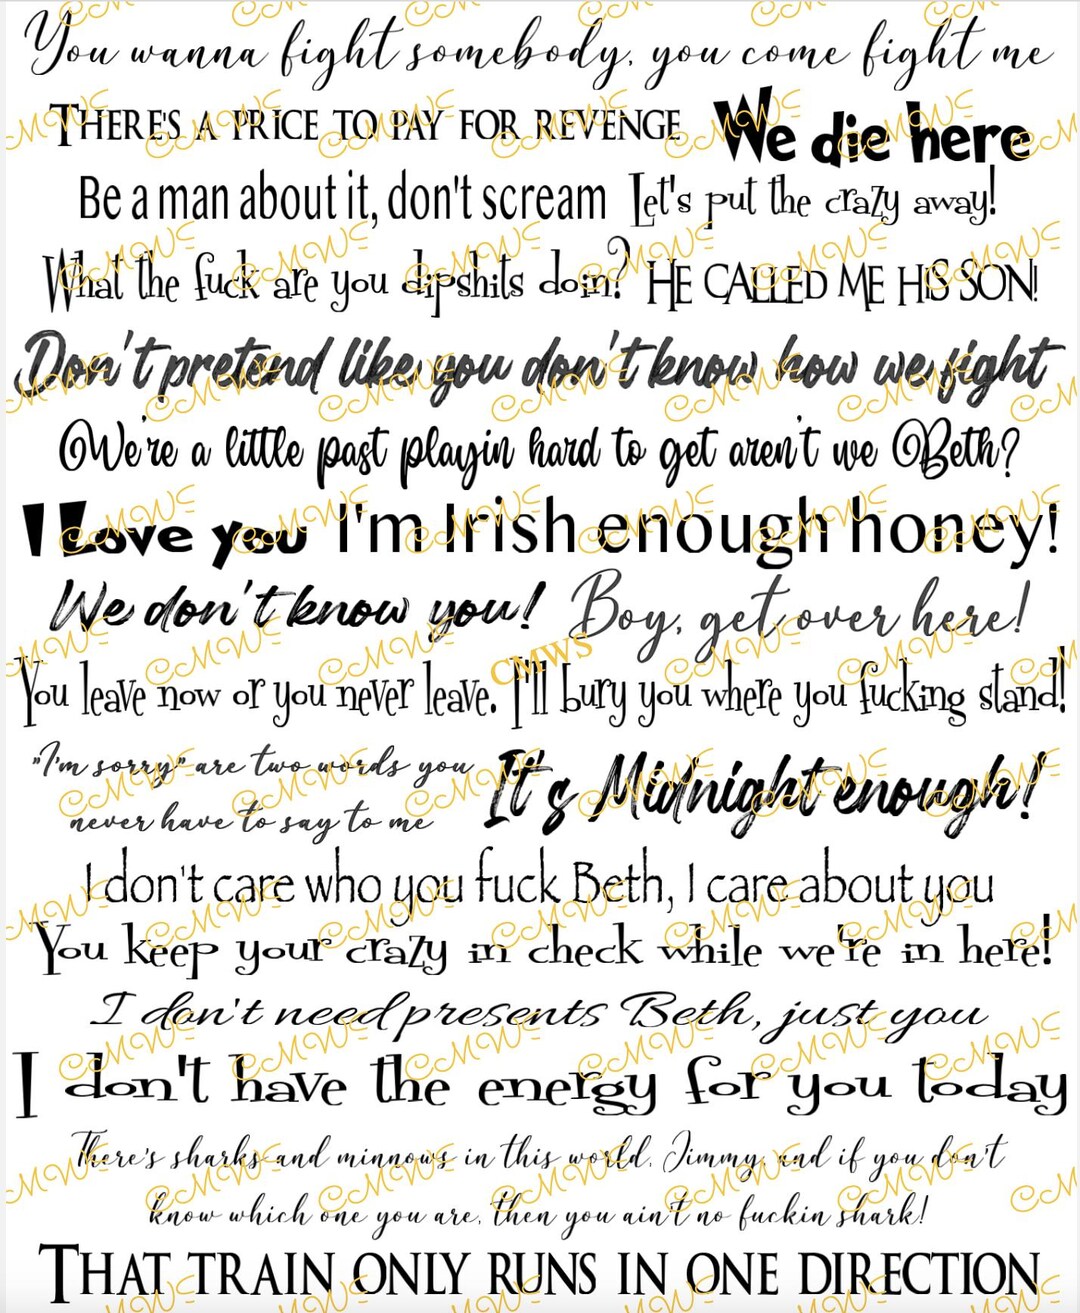 You wanna fight somebody, you come fight me
THERE'S A PRICE TO PAY FOR REVENGE We die here
Be a man about it, don't scream Let's put the crazy away!
What the fuck are you dipshits doin? HE CALLED ME HIS SON!
Don't pretend like you don't know how we fight
We're a little past playin hard to get aren't we Beth?
I Love you I'm Irish enough honey!
We don't know you! Boy, get over here!
CMWS
You leave now or you never leave. I'll bury you where you fucking stand!
"I'm sorry" are two words you
never have to say to me It's Midnight enough!
I don't care who you fuck Beth, I care about you
You keep your crazy in check while we're in here!
I don't need presents Beth, just you
I don't have the energy for you today
There's sharks and minnows in this world, Jimmy, and if you don't
know which one you are, then you ain't no fuckin shark!
THAT TRAIN ONLY RUNS IN ONE DIRECTION